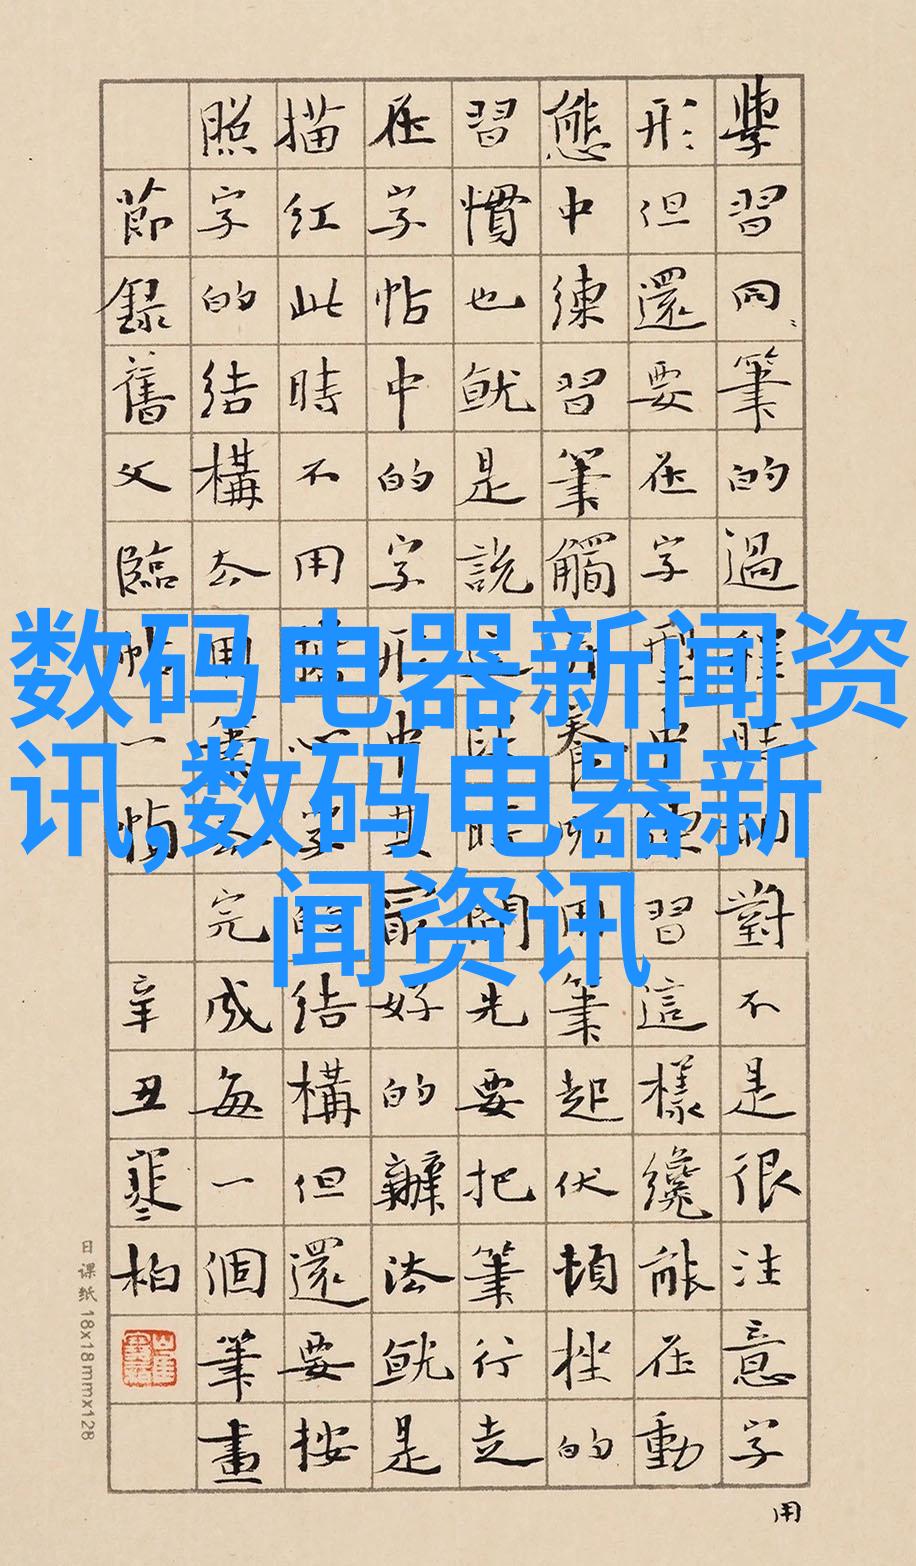 數码电器新闻资
讯,数码电器新
闻资讯
學習同筆的過程對不是很注意字
形但還要在字型習這樣纔能在動
態中練習筆觸用筆起伏頓挫的
習慣也就是說這時間先要把筆行走
在字帖中的字形中其最好的辦法就是
描紅此時不用心字的結構但還要按
照字的結構去用筆去完成每一個筆畫
節錄舊文臨帖一幀 辛丑寒柏
用
日课纸 18x18mmx128